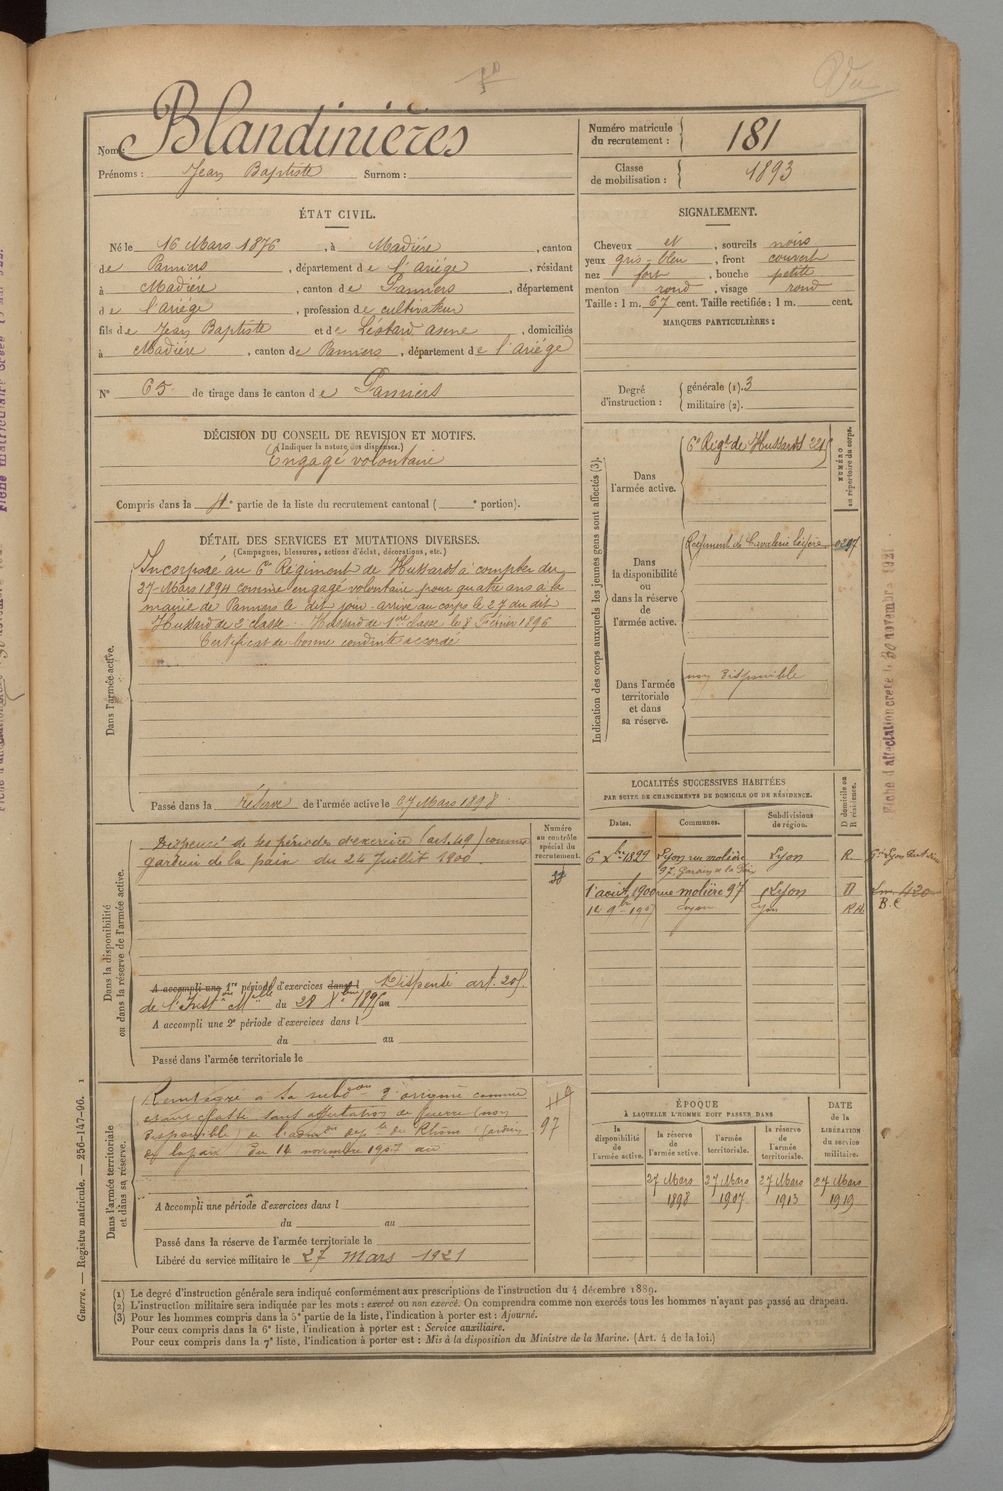 Vu
Nom : Blandinières
Prénoms : Jean Baptiste Surnom :
Numéro matricule du recrutement : 181
Classe de mobilisation : 1893
ÉTAT CIVIL.
Né le 16 Mars 1876, à Madière, canton
de Pamiers, département de l'ariége, résidant
à Madière, canton de Pamiers, département
de l'ariége, profession de cultivateur
fils de Jean Baptiste et de Léstard anne, domiciliés
à Madière, canton de Pamiers, département de l'ariége
N° 65 de tirage dans le canton de Pamiers
SIGNALEMENT.
Cheveux et, sourcils noirs
yeux gris-bleu, front couvert
nez fort, bouche petite
menton rond, visage rond
Taille : 1 m. 67 cent. Taille rectifiée : 1 m. cent.
MARQUES PARTICULIÈRES :
Degré d'instruction : générale (1). 3
militaire (2).
DÉCISION DU CONSEIL DE REVISION ET MOTIFS.
(Indiquer la nature des dispenses.)
Engagé volontaire
Compris dans la 4e partie de la liste du recrutement cantonal ( e portion).
DÉTAIL DES SERVICES ET MUTATIONS DIVERSES.
(Campagnes, blessures, actions d'éclat, décorations, etc.)
Dans l'armée active.
Incorporé au 6e Régiment de Hussards à compter du
27 Mars 1894 comme engagé volontaire pour quatre ans à la
mairie de Pamiers le dit jour - arrivé au corps le 27 du dit
Hussard de 2e classe. Hussard de 1ère classe le 8 Février 1896
Certificat de bonne conduite accordé
Passé dans la réserve de l'armée active le 27 Mars 1898
Indication des corps auxquels les jeunes gens sont affectés (3).
NUMÉRO au répertoire du corps.
Dans l'armée active.
6e Régt de Hussards
Dans la disponibilité ou dans la réserve de l'armée active.
Régiment de Cavalerie légère
Dans l'armée territoriale et dans sa réserve.
non disponible
Fiche d'affectation créée le 30 novembre 1921
LOCALITÉS SUCCESSIVES HABITÉES
PAR SUITE DE CHANGEMENTS DE DOMICILE OU DE RÉSIDENCE.
D domicile ou R résidence.
Dates. Communes. Subdivisions de région.
6 Xbre 1899 Lyon rue molière Lyon R
97. Gardien de la Paix
1er août 1900 rue molière 97 Lyon D
14 9bre 1907 Lyon Lyon
B.C
Dans la disponibilité ou dans la réserve de l'armée active.
Numéro au contrôle spécial du recrutement.
Dispensé de ses périodes d'exercice (art. 49) comme
gardien de la paix du 24 Juillet 1900.
A accompli une 1re période d'exercices dans l Dispensé art. 205
de l'Inston Melle du 28 Xbre 1899 au
A accompli une 2e période d'exercices dans l
du au
Passé dans l'armée territoriale le
Dans l'armée territoriale et dans sa réserve.
Réintégré à la subdon d'origine comme
étant classé sans affectation de guerre (non
disponible) de l'admon deple du Rhône (gardien
de la paix) du 14 novembre 1907 au
97
A accompli une période d'exercices dans l
du au
Passé dans la réserve de l'armée territoriale le
Libéré du service militaire le 27 mars 1921
ÉPOQUE
À LAQUELLE L'HOMME DOIT PASSER DANS
DATE de la LIBÉRATION du service militaire.
la disponibilité de l'armée active.
la réserve de l'armée active.
l'armée territoriale.
la réserve de l'armée territoriale.
27 Mars 1898
27 Mars 1907
27 Mars 1913
27 Mars 1919
(1) Le degré d'instruction générale sera indiqué conformément aux prescriptions de l'instruction du 4 décembre 1889.
(2) L'instruction militaire sera indiquée par les mots : exercé ou non exercé. On comprendra comme non exercés tous les hommes n'ayant pas passé au drapeau.
(3) Pour les hommes compris dans la 5e partie de la liste, l'indication à porter est : Ajourné.
Pour ceux compris dans la 6e liste, l'indication à porter est : Service auxiliaire.
Pour ceux compris dans la 7e liste, l'indication à porter est : Mis à la disposition du Ministre de la Marine. (Art. 4 de la loi.)
Guerre. — Registre matricule. — 256-147-96. 1